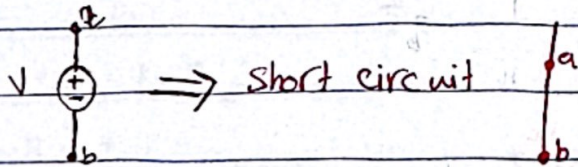 a
V + - ⇒ Short circuit a
b b